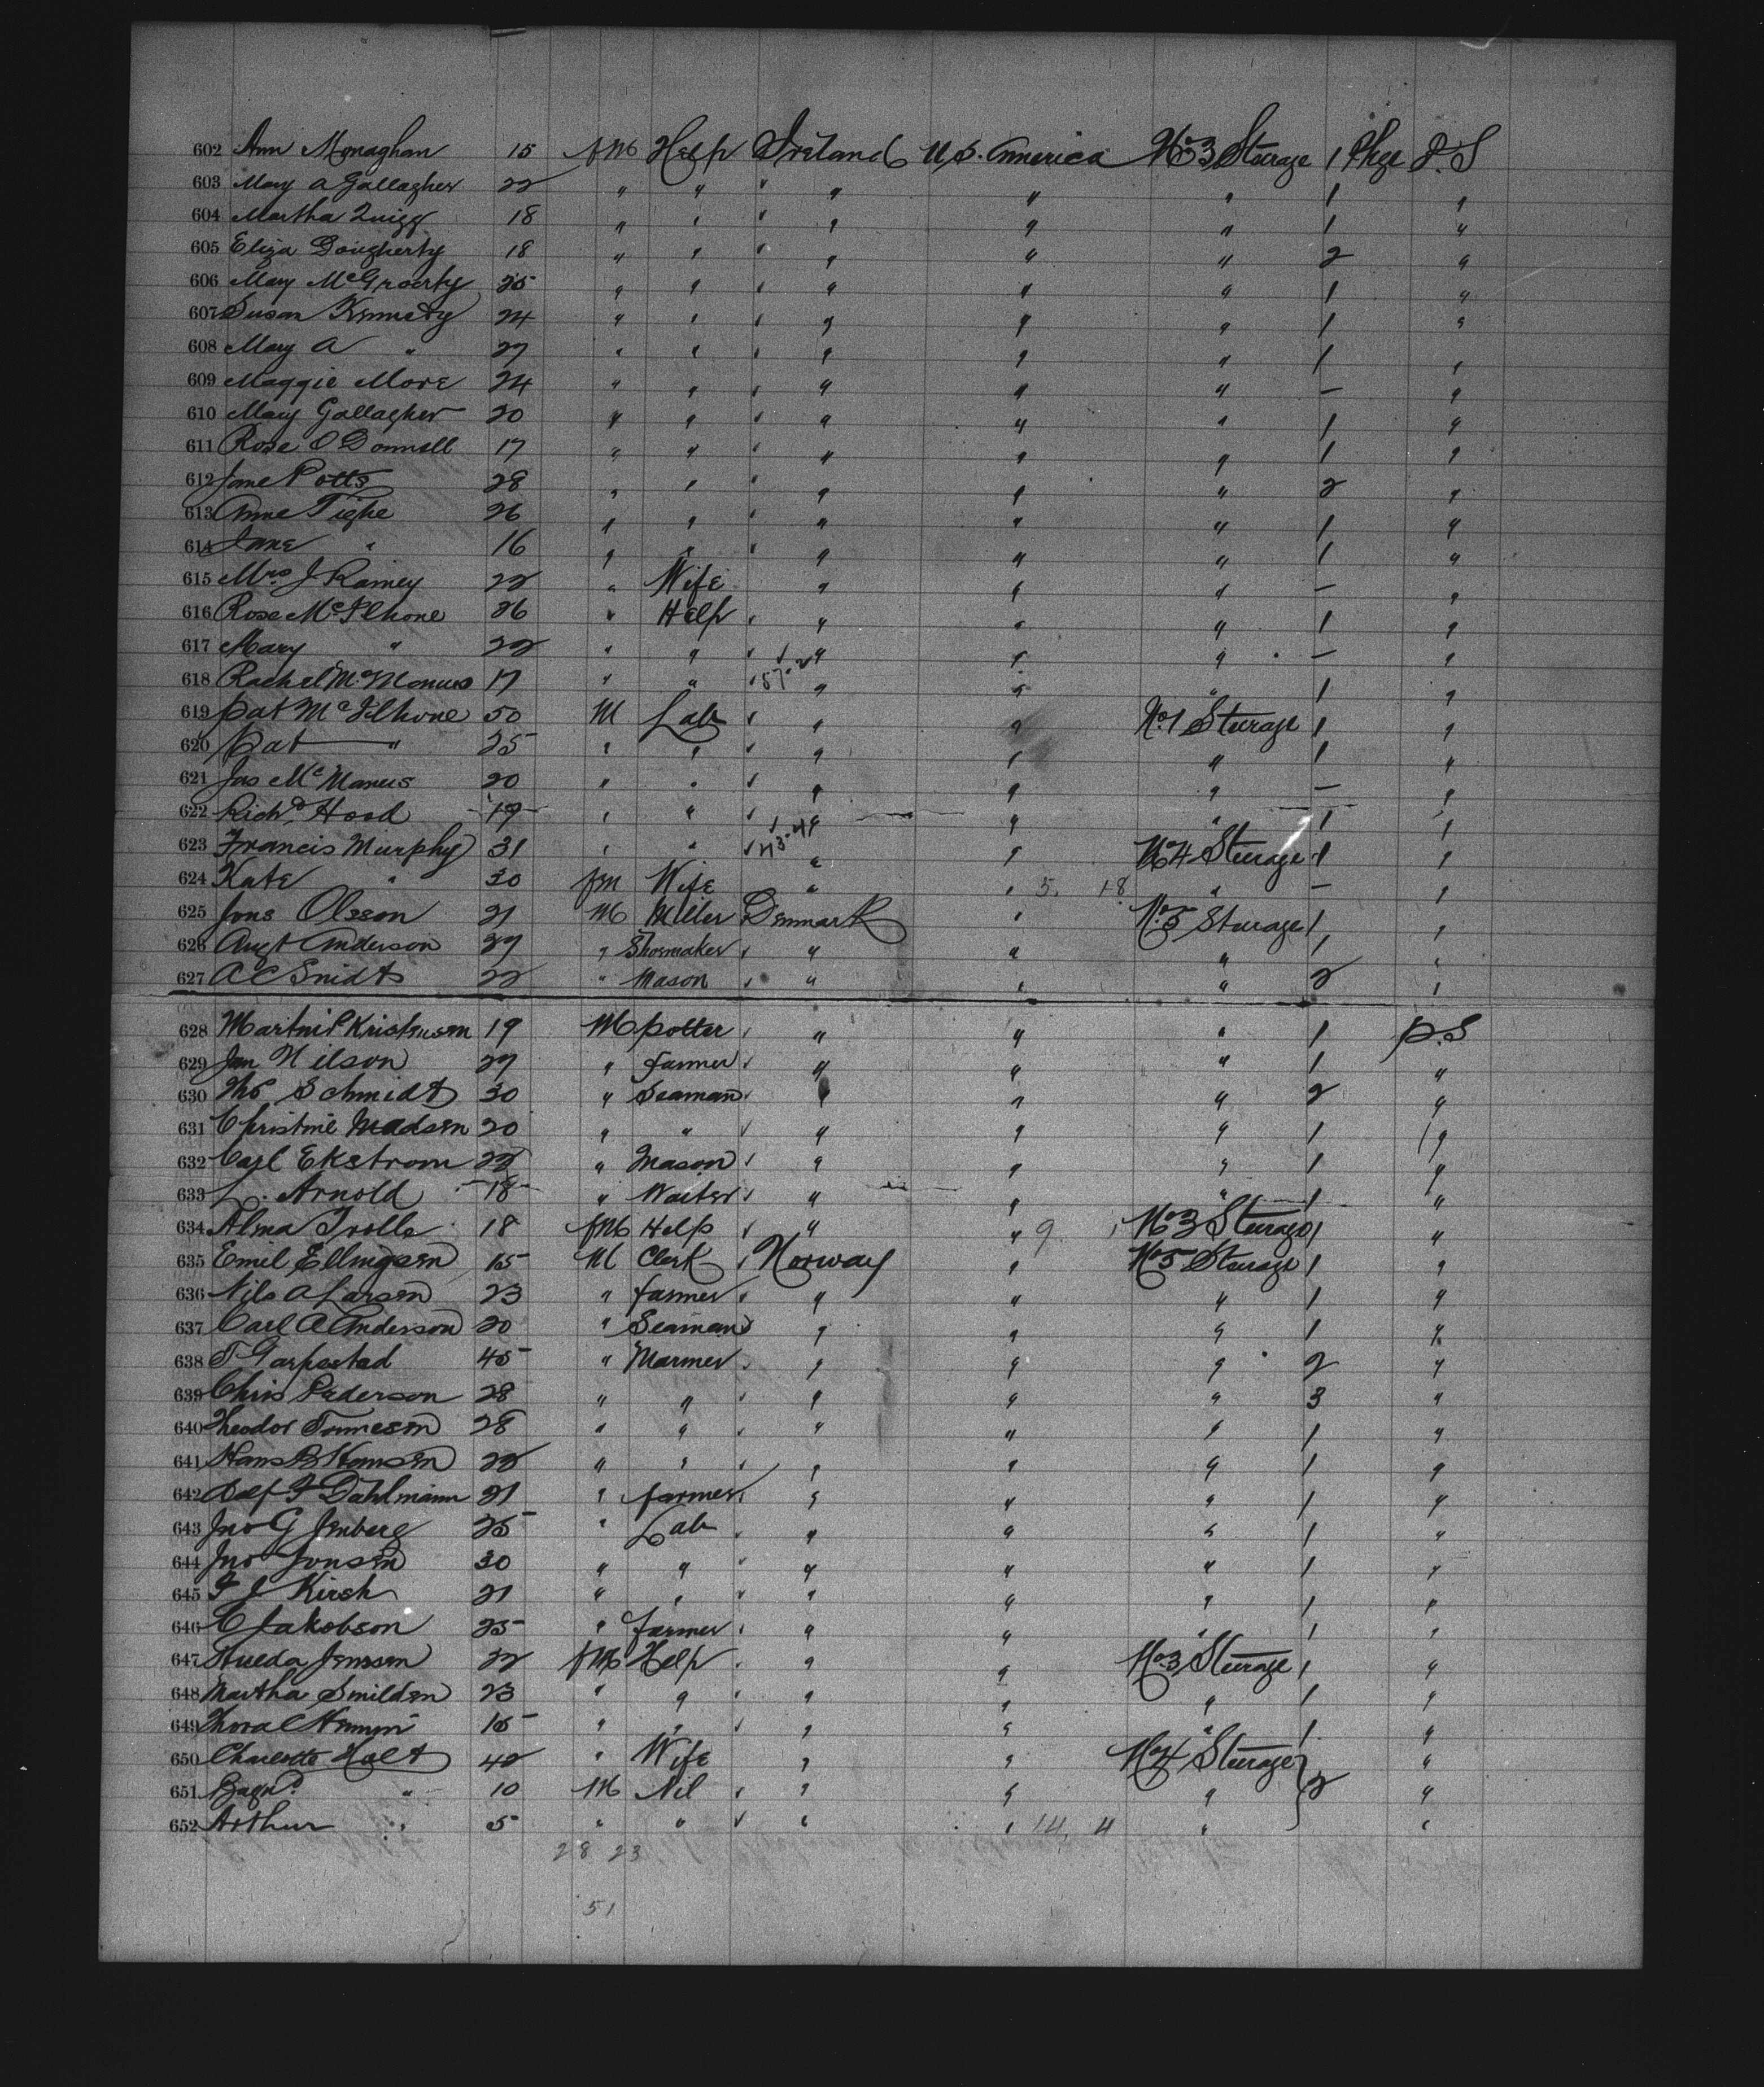 602 Ann Monaghan 15 fM Help Ireland U.S. America No 3 Sterage 1 Pkge P.S
603 Mary A Gallagher 22 " " " " " 1 "
604 Martha Quigg 18 " " " " " 1 "
605 Eliza Dougherty 18 " " " " " 2 "
606 Mary McGroerty 25 " " " " " 1 "
607 Susan Kennedy 24 " " " " " 1 "
608 Mary A " 27 " " " " " 1 "
609 Maggie More 24 " " " " " – "
610 Mary Gallagher 20 " " " " " 1 "
611 Rose O Donnell 17 " " " " " 1 "
612 Jane Potts 28 " " " " " 2 "
613 Anne Tighe 26 " " " " " 1 "
614 Jane " 16 " " " " " 1 "
615 Mrs J Rainey 22 " Wife " " " – "
616 Rose McIlhone 26 " Help " " " 1 "
617 Mary " 22 " " " " " – "
618 Rachel McManus 17 " " 57 " " " 1 "
619 Pat McIlhone 50 M Lab " " No 1 Sterage 1 "
620 Pat " 25 " " " " " 1 "
621 Jas McManus 20 " " " " " – "
622 Richd Hood 19 " " " " " 1 "
623 Francis Murphy 31 " " " " No 4 Sterage 1 "
624 Kate " 30 fm Wife " " 5. 18 " – "
625 Jons Olsson 21 M Miller Denmark " No 5 Sterage 1 "
626 Augt Anderson 27 " Shoemaker " " " 1 "
627 A C Snidt 22 " Mason " " " 2 "
628 Martni P Kristensen 19 M potter " " " 1 P.S
629 Jan Nilson 27 " farmer " " " 1 "
630 Ths Schmidt 30 " Seaman " " " 2 "
631 Christine Madsen 20 " " " " " 1 "
632 Carl Ekstrom 22 " Mason " " " 1 "
633 L. Arnold 18 " Waiter " " " 1 "
634 Alma Trolle 18 fM Help " " 9 No 3 Sterage 1 "
635 Emil Ellingsen 15 M Clerk Norway " No 5 Sterage 1 "
636 Nils A Larsen 23 " farmer " " " 1 "
637 Carl A Anderson 20 " Seaman " " " 1 "
638 T Garpestad 45 " Marmer " " " 2 "
639 Chris Pederson 28 " " " " " 3 "
640 Theodor Tonneson 28 " " " " " 1 "
641 Hans B Hansen 22 " " " " " 1 "
642 Adlf F Dahlmann 21 " farmer " " " 1 "
643 Jno G Jenberg 25 " Lab " " " 1 "
644 Jno Jonsen 30 " " " " " 1 "
645 F J Kirsh 21 " " " " " 1 "
646 C Jakobson 25 " farmer " " " 1 "
647 Hulda Jenssen 22 fM Help " " No 3 Sterage 1 "
648 Martha Smilden 23 " " " " " 1 "
649 Thora 15 " " " " " 1 "
650 Charlotte Holt 42 " Wife " " No 4 Sterage 2 "
651 " 10 M Nil " " " "
652 Arthur " 5 " " " " 14. 4 " "
28 23
51